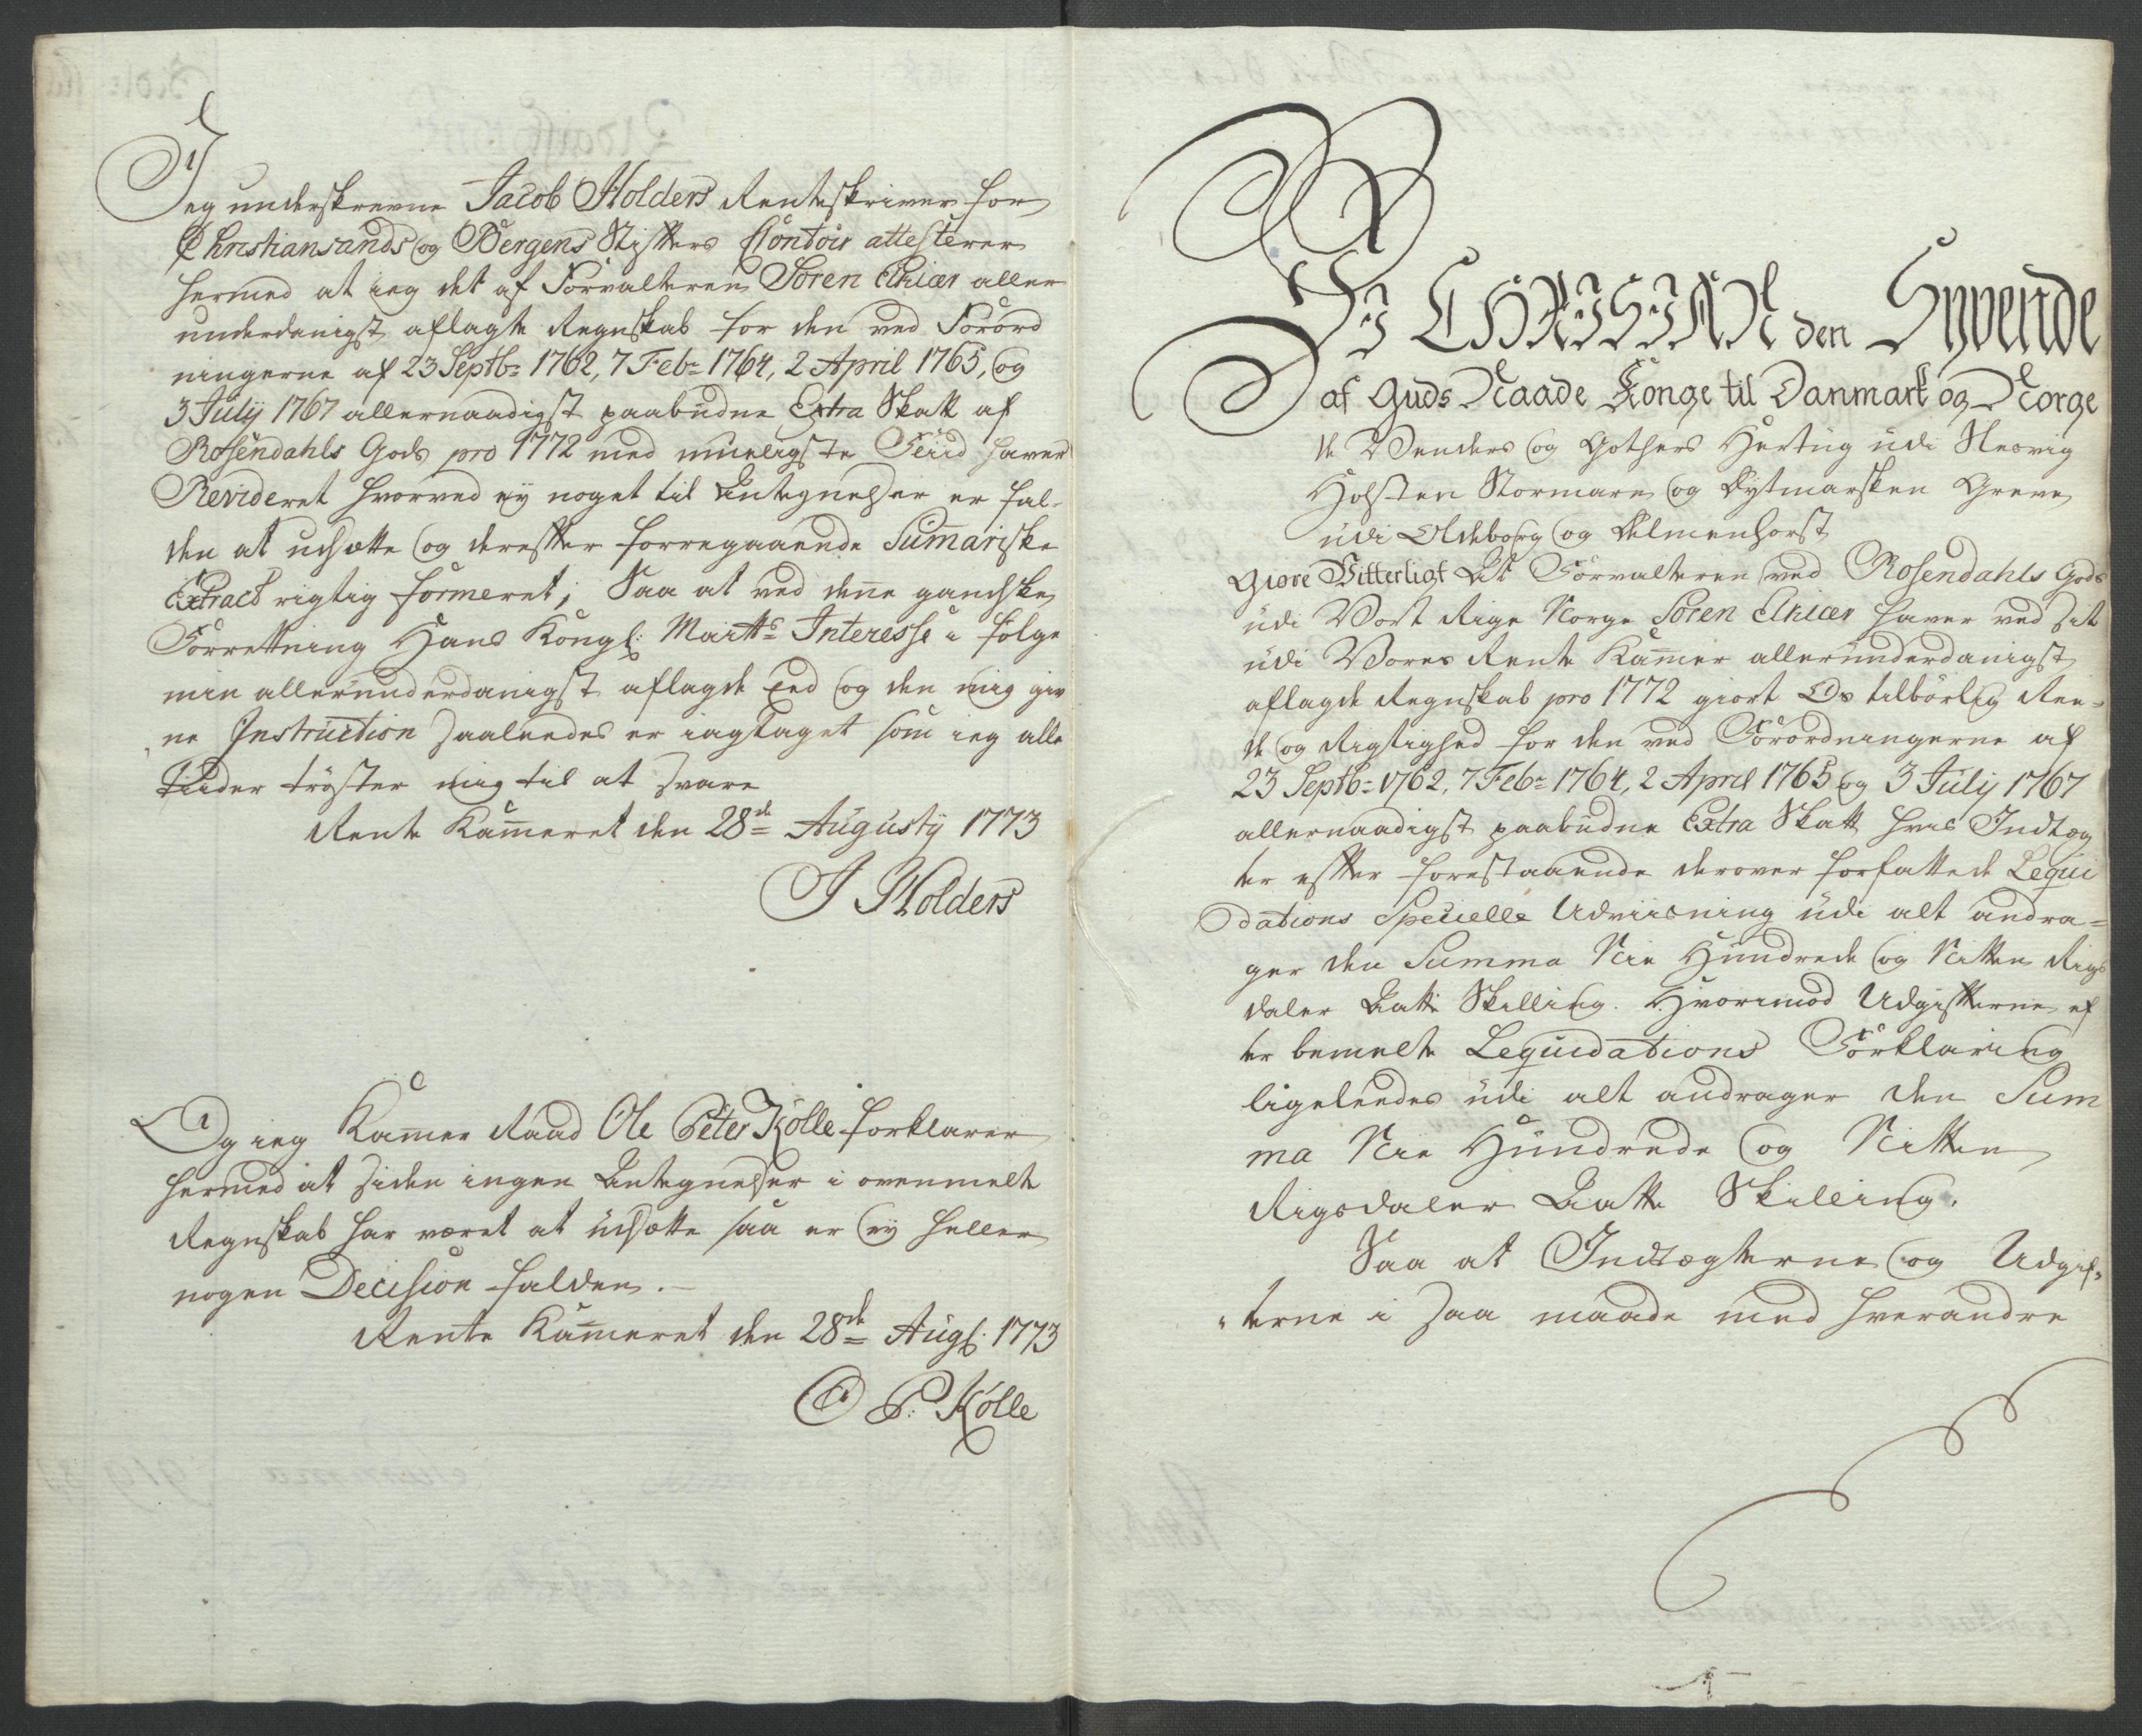 Jeg underskrevne Jacob Holders Renteskriver for
Christiansands og Bergens Stifters Contoir attesterer
hermed at ieg det af Forvalteren Søren Elkiær aller
underdanigst aflagte Regnskab for den ved Forord
ningerne af 23 Septbr 1762, 7 Febr 1764, 2 April 1765, og
3 Julÿ 1767 allernaadigst paabudne Extra Skatt af
Rosendahls Gods pro 1772 med mueligste Fliid haver
Revideret hvorved eÿ noget til Antegnelser er fal-
den at udsætte og derefter forregaaende Sum̅ariske
Extract rigtig formeret; Saa at ved den̅e gandske
Forretning Hans Kongl: Maÿtts Interesse i følge
min allerunderdanigst aflagde Eed og den mig giv
ne Instruction saaleedes er iagtaget som ieg alle
tiider trøster mig til at svare
Rente Kam̅eret den 28de Augustÿ 1773
J Holders
Og ieg Kam̅er Raad Ole Peter Kølle forklarer
hermed at siden ingen Antegnelser i ovenmelte
Regnskab har været at udsætte saa er eÿ heller
nogen Decision falden.
Rente Kam̅eret den 28de Augs: 1773
O P: Kølle
Wi CHRISTIAN den Syvende
af Guds Naade Konge til Danmark og Norge
de Wenders og Gothers Hertug udi Slesvig
Holsten Stormarn og Dytmarsken Greve
udi Oldeborg og Delmenhorst
Giøre Vitterligt At Forvalteren ved Rosendahls Gods
udi Vort Rige Norge Søren Elkiær haver ved sit
udi Vores Rente Kam̅er allerunderdanigst
aflagde Regnskab pro 1772 giort Os tilbørlig Ree-
de og Rigtighed for den ved Forordningerne af
23 Septbr 1762, 7 Febr 1764, 2 April 1765 og 3 Julÿ 1767
allernaadigst paabudne Extra Skatt hvis Indtæg
ter efter forestaaende derover forfattede Leqvi
dations Specielle Udviisning udi alt andra-
ger den Summa Nie Hundrede og Nitten Rigs
daler Aatte Skilling. Hvorimod Udgifterne ef
ter bemelte Leqvidations Forklaring
ligeleedes udi alt andrager den Sum
ma Nie Hundrede og Nitten
Rigsdaler Aatte Skilling.
Saa at Indtægterne og Udgif-
terne i saa maade med hverandre